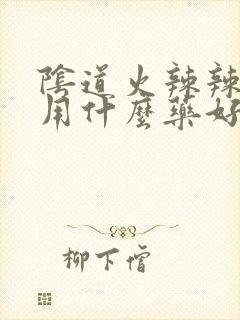 陰道火辣辣
用什麼藥好
柳下僧